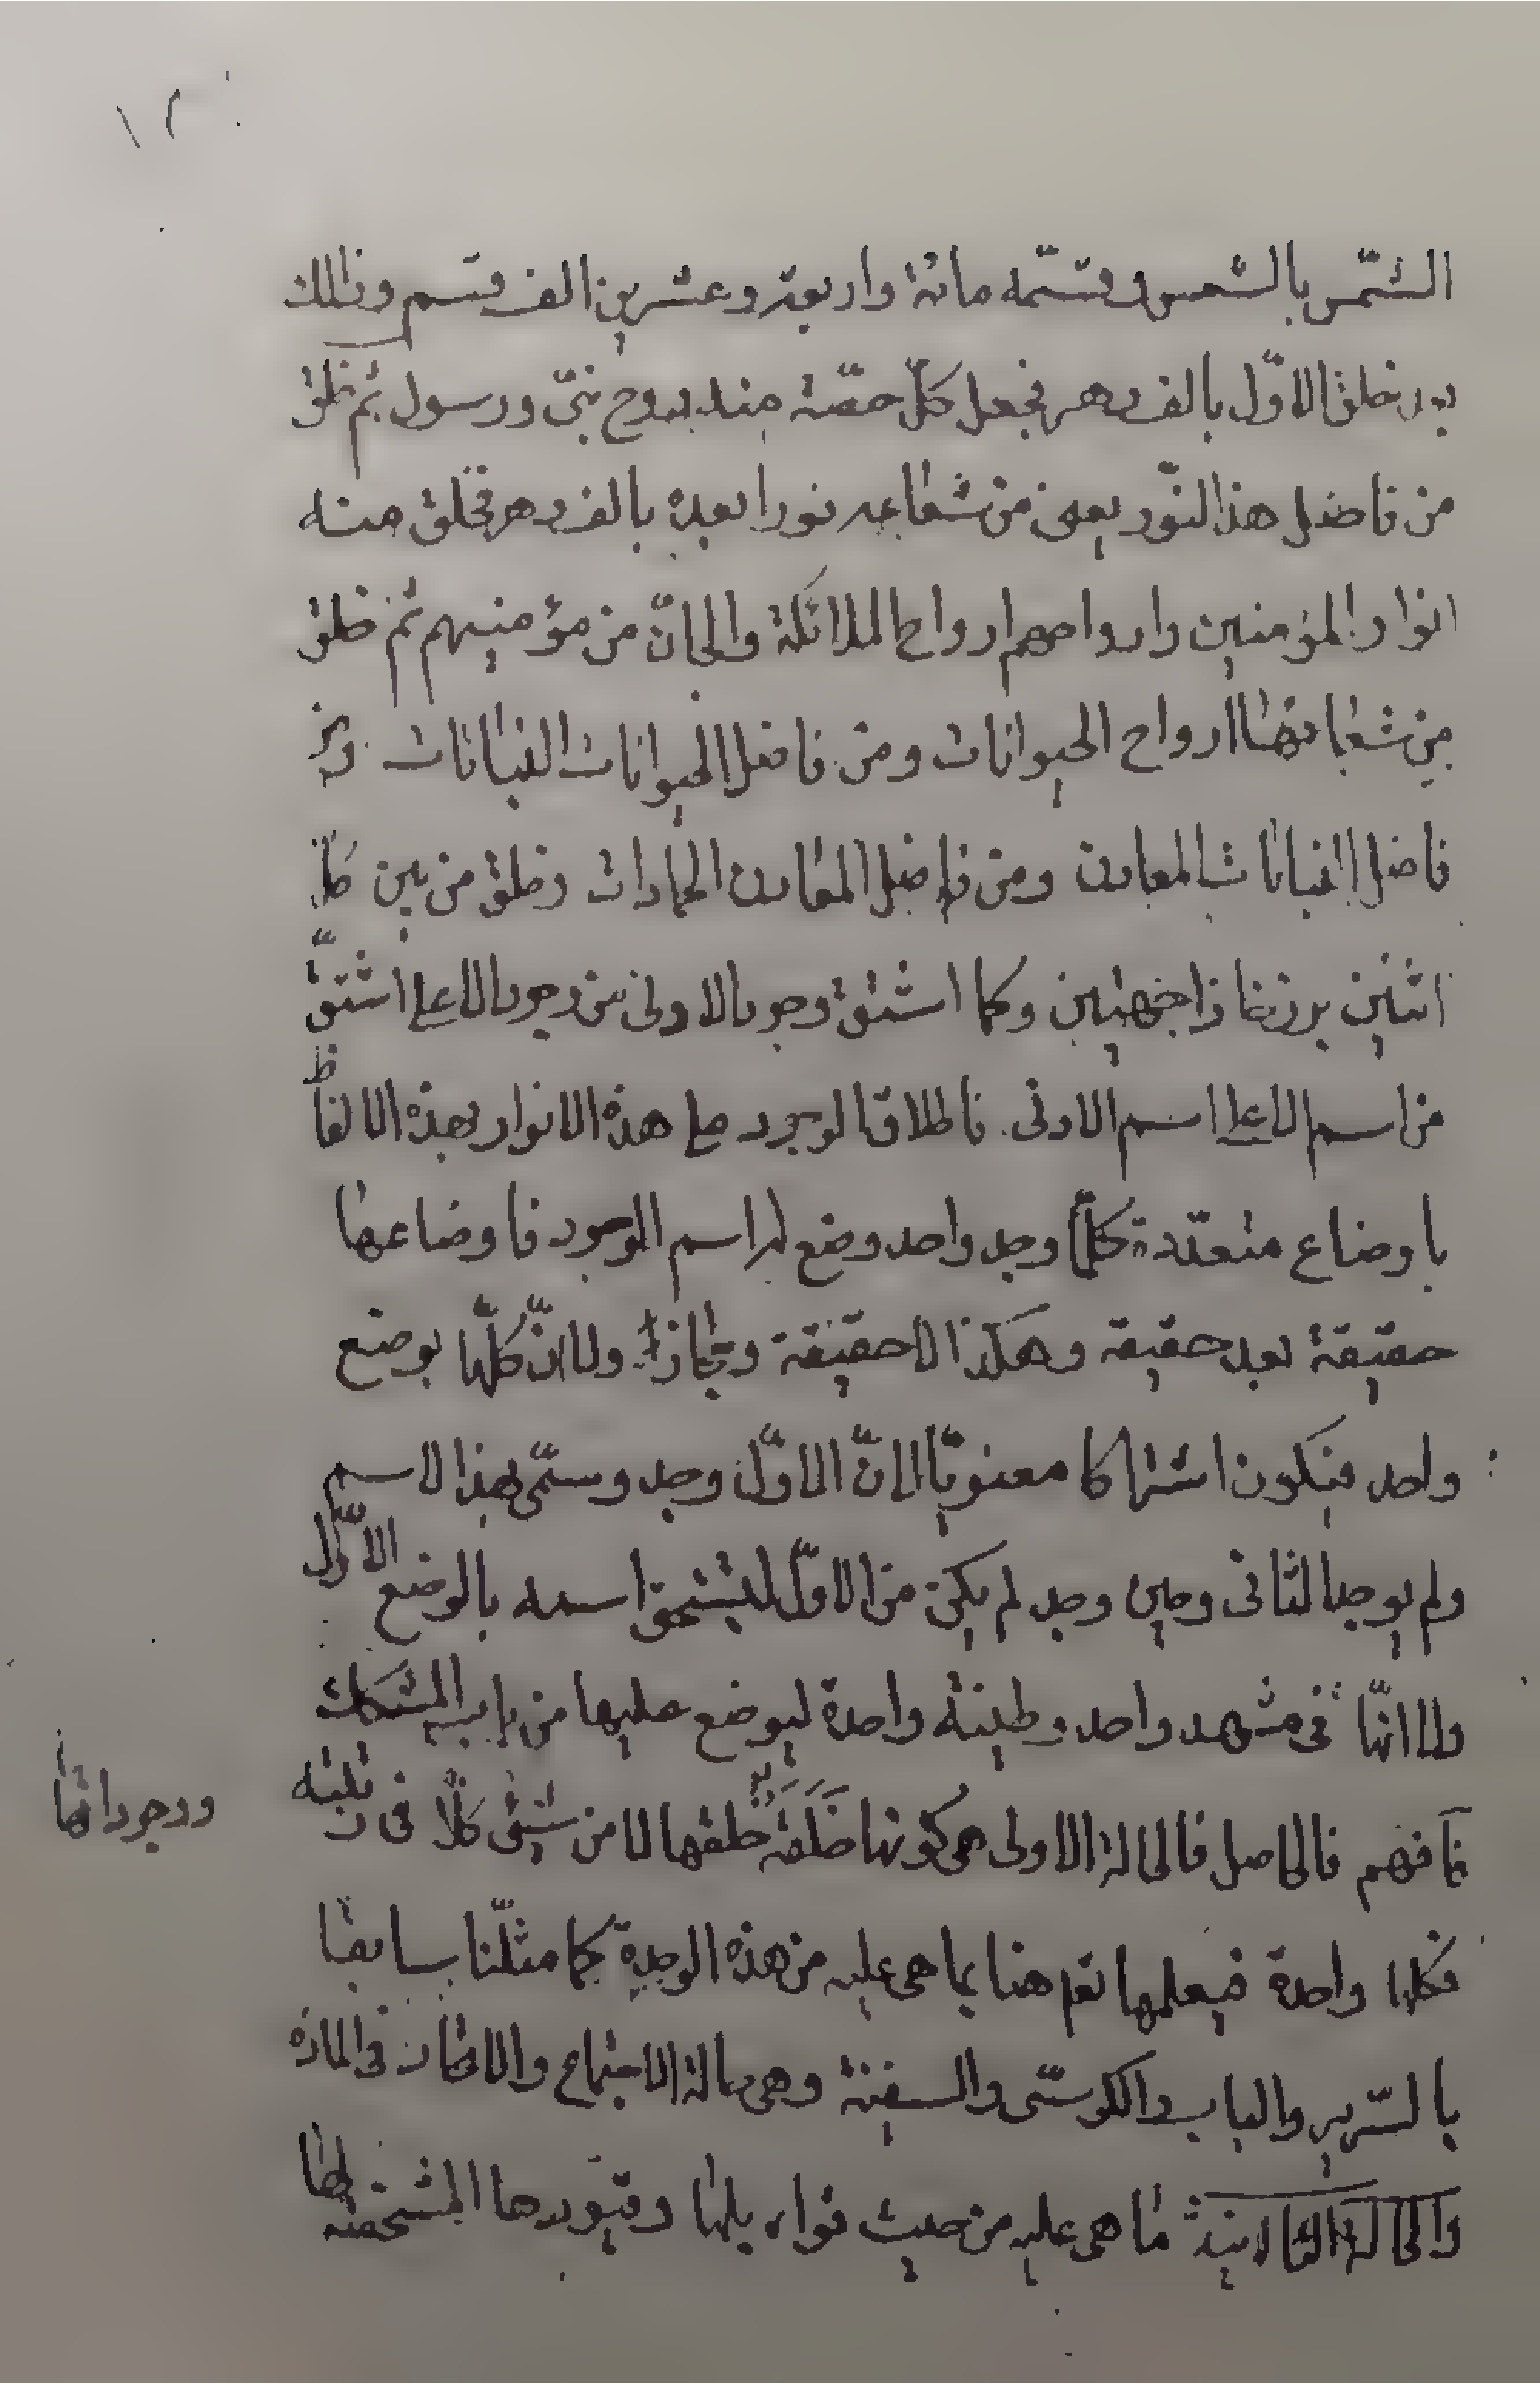 ١٢
الشمس بالشمس وقسّمه مائة واربعة وعشرين الف قسم وذلك
بعد خلق الاوّل بالف دهر فجعل كلّ حصّة منه روح نبىّ ورسول ثم خلق
من فاضل هذا النّور يعنى من شعاعه نورا بعده بالف دهر فخلق منه
انوار المؤمنين وارواحهم ارواح الملائكة والجانّ من مؤمنيهم ثم خلق
من شعاعها ارواح الحيوانات ومن فاضل الحيوانات النباتات ومن
فاضل النباتات المعادن ومن فاضل المعادن الجمادات وخلق من بين كلّ
اثنين برزخا ذا جهتين وكما اشتق وجود الادنى من وجود الاعلى اشتقّ
من اسم الاعلى اسم الادنى فاطلاق الوجود على هذه الانوار بهذه الالفاظ
باوضاع متعدّدة كلّما وجد واحد وضع له اسم الوجود فاوضاعها
حقيقة بعد حقيقة وهكذا لا حقيقة ومجازا ولا انّ كلّها بوضع
واحد فيكون اشتراكا معنويّا لانّ الاوّل وجد وسمّى بهذا الاسم
ولم يوجد الثانى وحين وجد لم يكن من الاوّل ليستحق اسمه بالوضع الاوّل
ولا انّها فى مشهد واحد وطينة واحدة ليوضع عليها من باب المشكك
فافهم فالحاصل فالحالة الاولى هى كونها خلقة خلقها لا من شىء كلّا فى رتبته
ووجوداتها
فكلها واحدة فيعلمها تعم هنا بما هى عليه من هذه الوحدة كما مثلّنا سابقا
بالسّرير والباب والكرسّى والسفينة وهى حالة الاجتماع والاتحاد فى المادة
والحالة الثانية ما هى عليه من حيث قوابلها وقيودها المشخصة لها